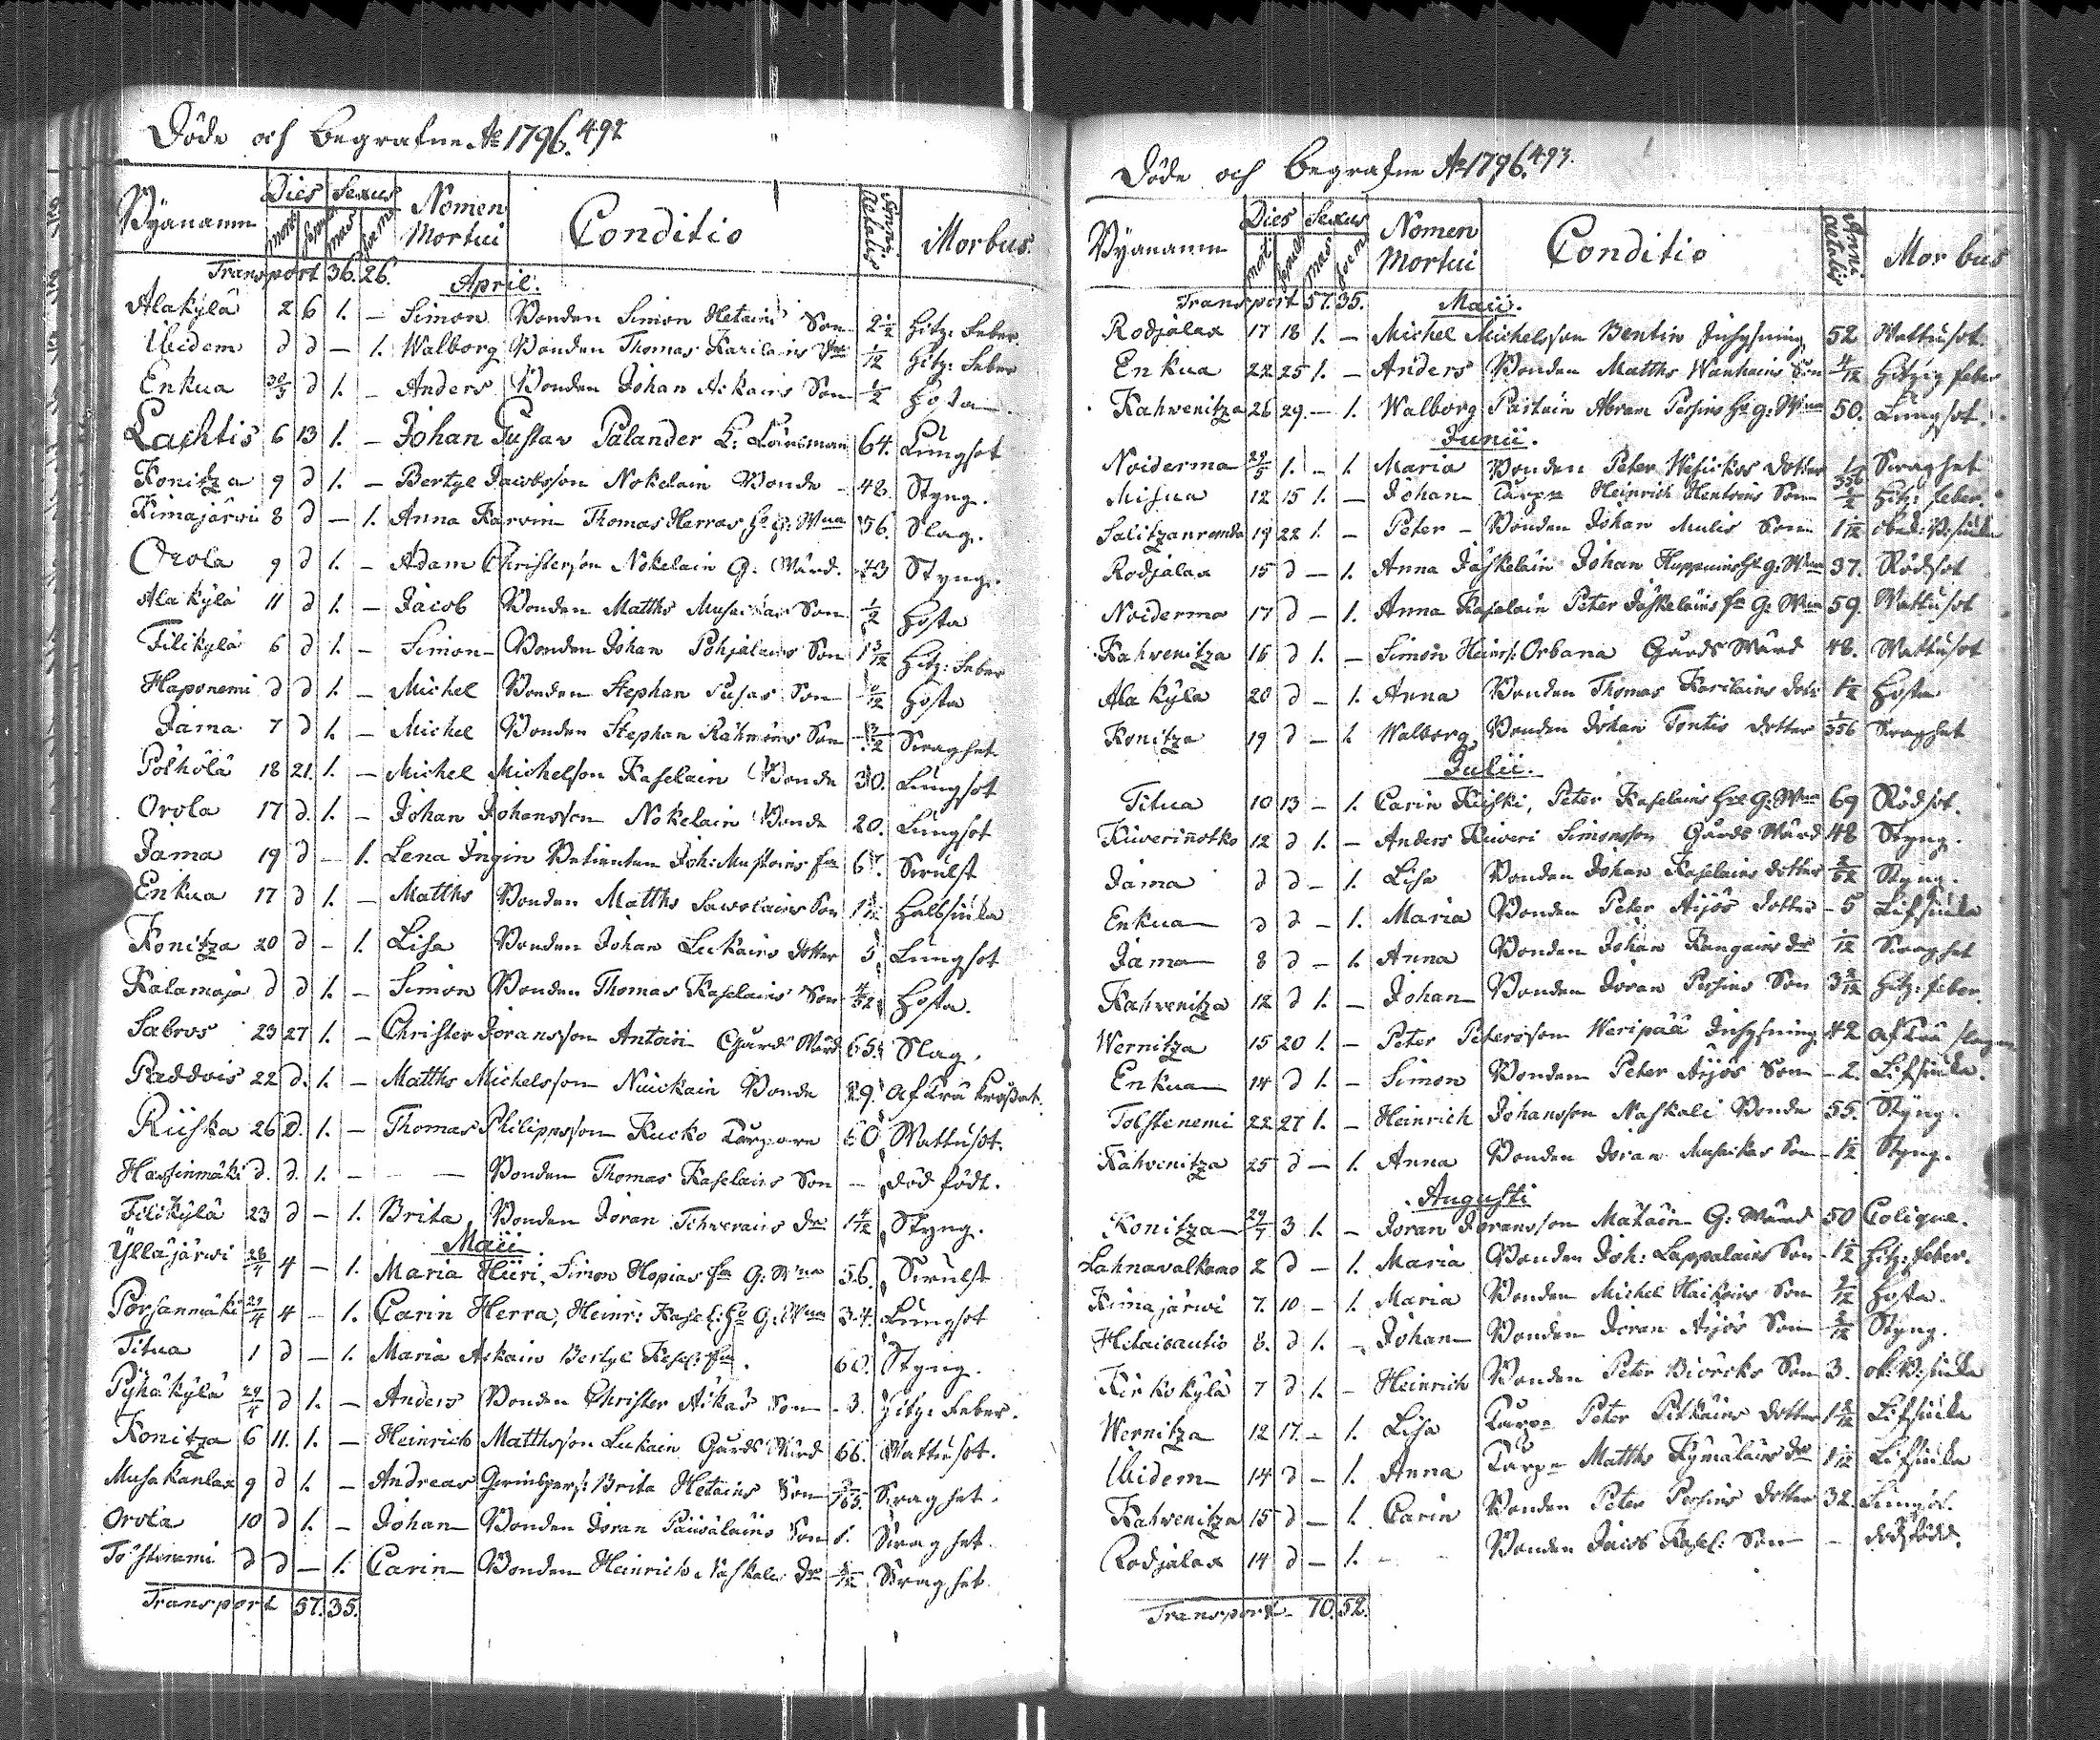 Döde och begrafne Ao 1796. 492
Byanamn Dies Sexus Nomen Mortui Conditio Anni Aetatis Morbus.
Mort. Sepult. Mas Foem.
Transport 36. 26.
April.
Alakylä 2 6 1. – Simon Bonden Simon Hetains Son 2 1/2 Hitz: Feber.
Ibidem d d – 1. Walborg Bonden Thomas Karilains dr 1/12 Hitz: Feber
Enkua 30/3 d 1. – Anders Bonden Johan Askains Son 1/2 Hosta.
Lachtis 6 13 1. – Johan Gustav Palander K: Länsman 64. Lungsot
Konitza 9 d 1. – Bertyl Jacobsson Nokelain Bonde – 48. Styng.
Kimajärvi 8 d – 1. Anna Karvin Thomas Herras G: W 56. Slag.
Orola 9 d 1. – Adam Christerson Nokelain G: Wärd. 43 Styng.
Alakylä 11 d 1. – Jacob Bonden Matths Son 1/2 Hosta
Filikylä 6 d 1. – Simon – Bonden Johan Pohjalains Son 1 3/12 Hitz: Feber
Haponemi d d 1. – Michel Bonden Stephan Son Hosta
Jama 7 d 1. – Michel Bonden Stephan Son Swaghet
Pölhölä 18 21. 1. – Michel Michelson Kaselain Bonde 30. Lungsot
Orola 17 d. 1. – Johan Johansson Nokelain Bonde 20. Lungsot
Jama 19 d – 1. Lena Ingin Joh: fa Swulst
Enkua 17 d 1. – Matths Bonden Matths Sawolains Son Halssiuka
Konitza 20 d – 1. Lisa Bonden Johan Lukains dotter 5 Lungsot
Kalamaja d d 1. – Simon Bonden Thomas Kaselains Son Hosta.
Sabros 23 27 1. – Christer Joransson Antoin Gårds Wärd 65. Slag.
Raddois 22 d. 1. – Matths Michelsson Nuickain Bonde 29. af Trä krossat.
Riiska 26 d. 1. – Thomas Philippsson Kucko Torpare 60 Wattusot.
Hassinmäki d. d. 1. – – – Bonden Thomas Kaselains Son – död född.
Filikylä 23 d – 1. Brita Bonden Joran Tihwerains dr 1 4/12 Styng.
Maii
Ylläjärwi 28/4 4 – 1. Maria Hiiri, Simon Hopias fa G: W 56. Swulst
Porsanmäki 29/4 4 – 1. Carin Herra, Heinr: Kasel: G: W 34. Lungsot
Titua 1 d – 1. Maria Askain Bertyl Kasel: fa. 60. Styng.
Pyhäkylä 29/4 d 1. – Anders Bonden Christer Aikäs Son – 3. Hitz: Feber.
Konitza 6 11. 1. – Heinrich Matthsson Lukain Gårds Wärd 66. Wattusot.
Musakanlax 9 d 1. – Andreas Brita Hetains Son Swaghet.
Orola 10 d 1. – Johan – Bonden Joran Päiwäläins Son 1. Swaghet.
Tolstinemi d d – 1. Carin – Bonden Heinrich Naskalis dr Swaghet.
Transport 57. 35.
Döde och begrafne Ao 1796. 493.
Byanamn Dies Sexus Nomen Mortui Conditio Anni Aetatis Morbus
Mort Sepult Mas Foem
Transport 57. 35.
Maii.
Rodjälax 17 18 1. – Michel Michelsson Bentin Inhysning 52 Wattusot.
Enkua 22 25 1. – Anders Bonden Matths Wanhains Son 4/12 Hitzig feber
Kahvenitza 26 29. – 1. Walborg Partain Abram Persins G: W 50. Lungsot.
Junii.
Noiderma 29/5 1. – 1. Maria Bonden Peter dotter Swaghet
Misua 12 15 1. – Johan – Torpn Heinrich Hentoins Son Hitz: feber.
Salitzanrenda 19 22 1. – Peter – Bonden Johan Mulis Son
Rodjälax 15 d – 1. Anna Jäskeläin Johan Huppuins G: W 37. Rödsot
Noiderma 17 d – 1. Anna Kaselain Peter Jäskeläins fa G: W 59. Wattusot
Kahvenitza 16 d 1. – Simon Heinrs: Orbana Gårds Wärd 48. Wattusot
Alakylä 20 d – 1. Anna Bonden Thomas Karilains dotr Hosta
Konitza 19 d – 1. Walborg Bonden Johan Tontis dotter Swaghet
Julii.
Titua 10 13 – 1. Carin Kiiski, Peter Kaselains G: W 69 Rödsot.
Kiiverinotko 12 d 1. – Anders Kiiveri Simonsson Gårds Wärd 48 Styng.
Jama d d – 1. Lisa Bonden Johan Kaselains dotter Styng.
Enkua – d d – 1. Maria Bonden Peter Aijös dotter – 5 Lifsiuka
Jama – 8 d – 1. Anna Bonden Johan Kangains dr 1/12 Swaghet
Kahvenitza 12 d 1. – Johan – Bonden Joran Persins Son 3 3/12 Hitz: feber.
Wernitza 15 20 1. – Peter Petersson Weripää Inhysning 42 af Trä slagen
Enkua – 14 d 1. – Simon Bonden Peter Aijös Son – 2. Lifsiuka.
Tolstenemi 22 27 1. – Heinrich Johansson Naskali Bonde 55. Styng.
Kahvenitza 25 d – 1. Anna Bonden Joran Musickas Son – 1/2 Styng.
Augusti
Konitza – 29/7 3 1. – Joran Joransson Matäin G: Wärd 50 Colique.
Lahnavalkamo 2 d – 1. Maria Bonden Joh: Lappalains Son – 1/2 Hitz: feber.
Kimajärwi 7. 10 – 1. Maria Bonden Michel Haikoins Son Hosta.
Hetaisautio 8. d 1. – Johan – Bonden Joran Aijös Son Styng.
Kirkokylä 7 d 1. – Heinrich Bonden Peter Biörcks Son 3.
Wernitza 12 17. – 1. Lisa Torpn Peter Pitkäins dotter Lifsiuka
Ibidem – 14 d – 1. Anna Torpn Matths Kymäläins dr Lifsiuka
Kahvenitza 15 d – 1. Carin Bonden Peter Persins dotter 32. Lungsot.
Rodjälax 14 d – 1. – – Bonden Jacob Kasel: Son – – dödfödd.
Transport – 70. 52.